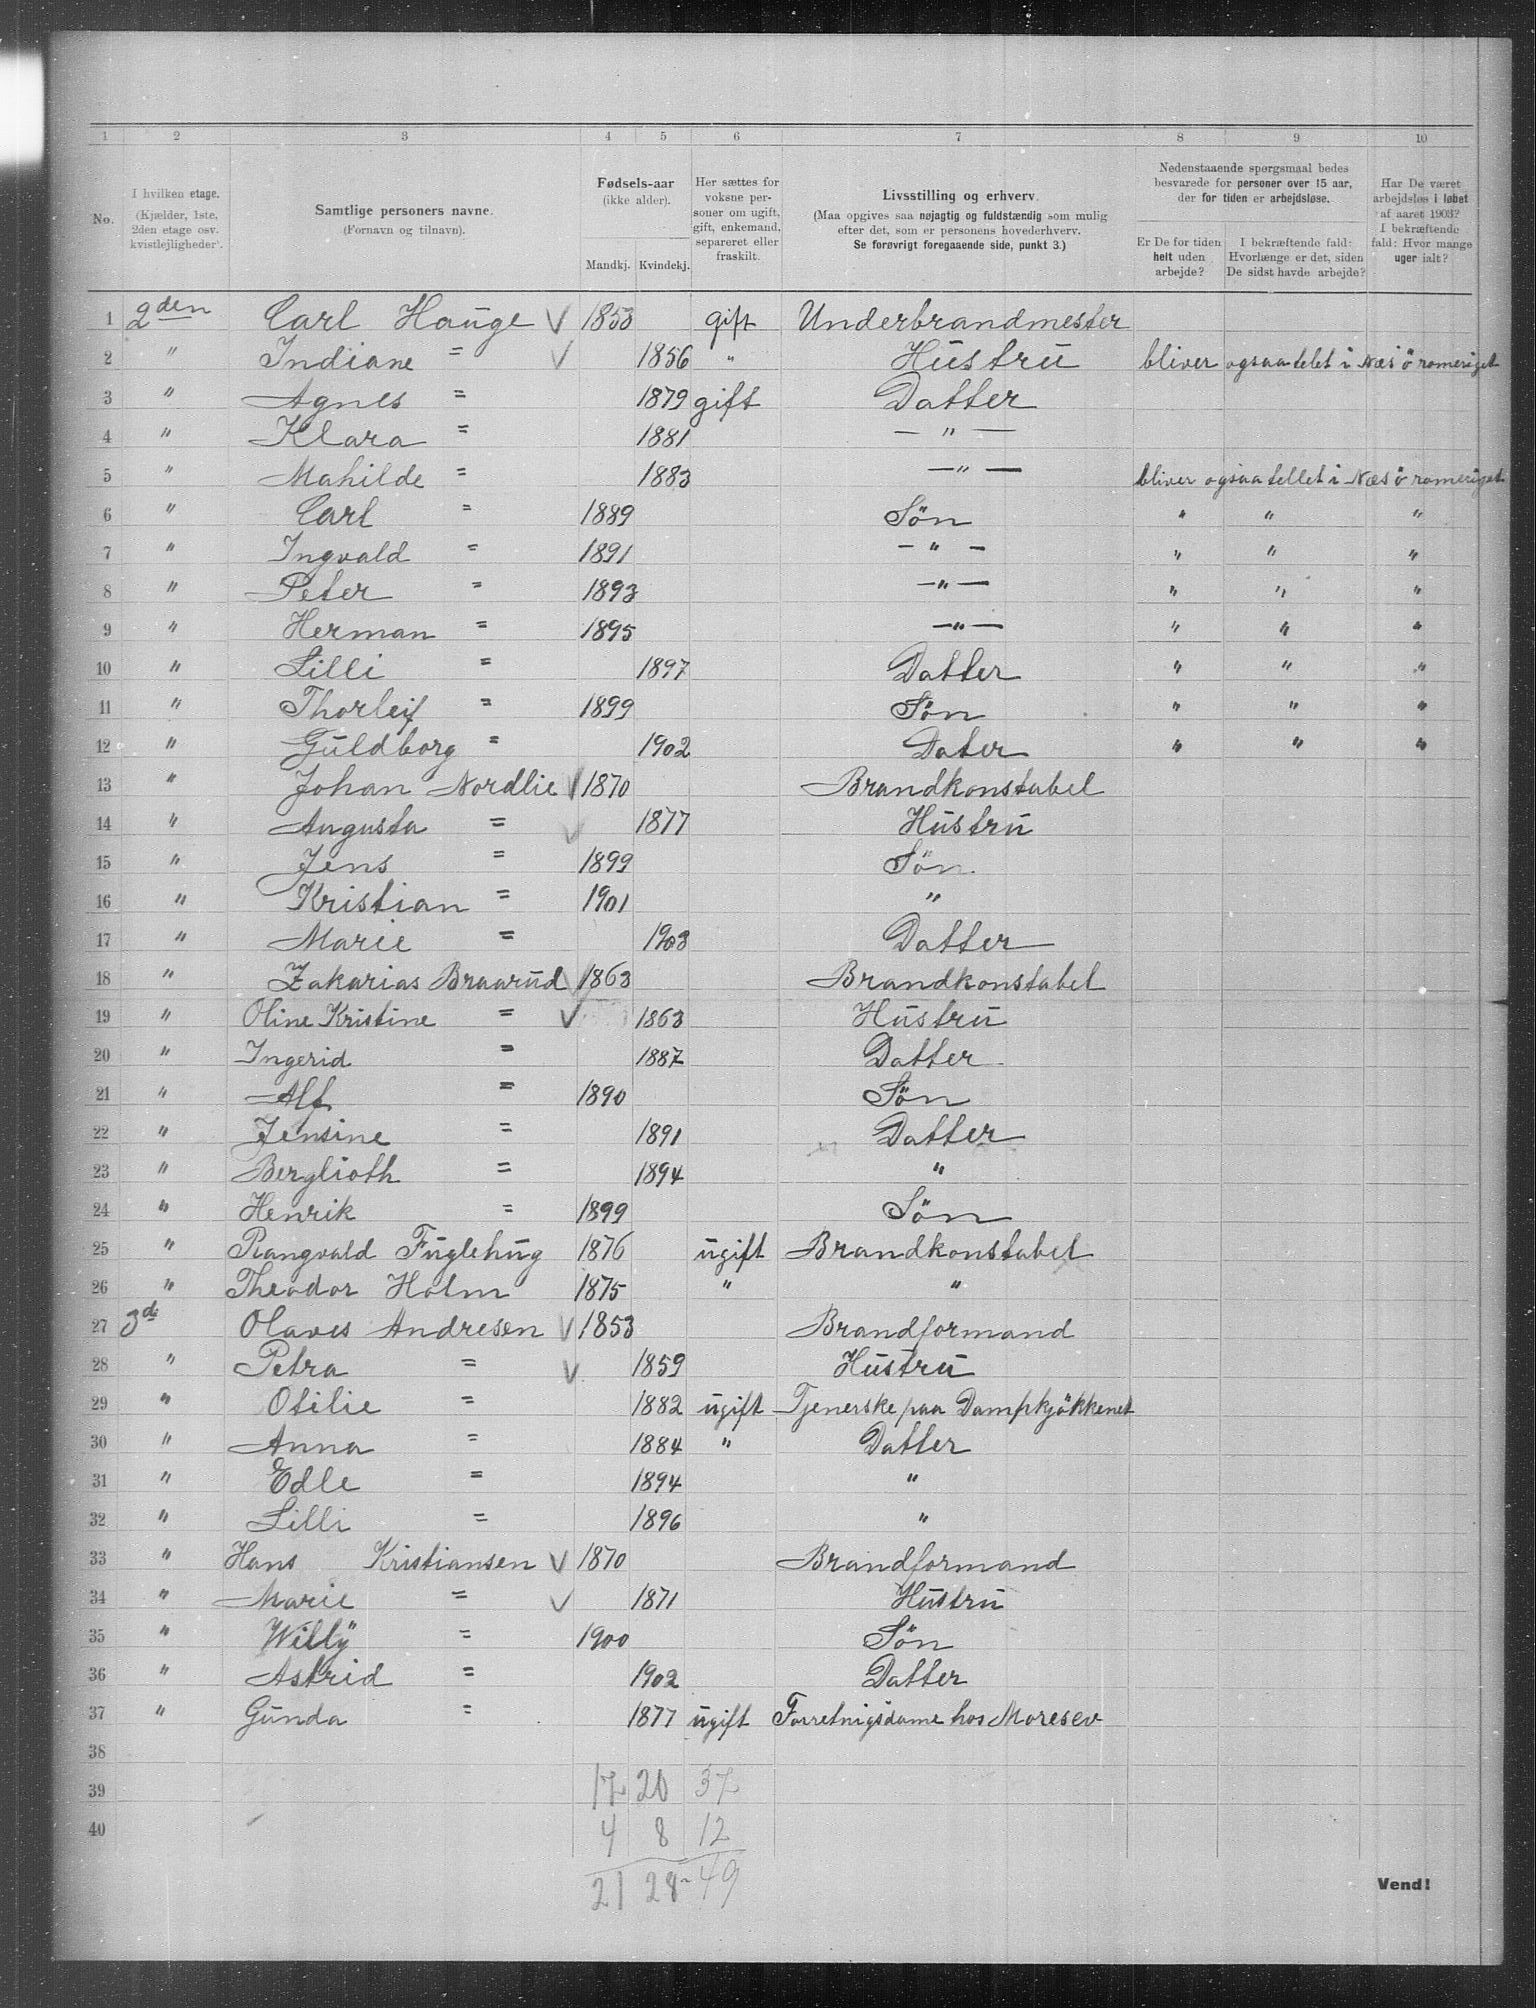 1 2 3 4 5 6 7 8 9 10
No.
I hvilken etage. (Kjælder, 1ste, 2den etage osv. kvistlejligheder).
Samtlige personers navne. (Fornavn og tilnavn).
Fødsels-aar (ikke alder). Mandkj. Kvindekj.
Her sættes for voksne personer om ugift, gift, enkemand, separeret eller fraskilt.
Livsstilling og erhverv. (Maa opgives saa nøjagtig og fuldstændig som mulig efter det, som er personens hovederhverv. Se forøvrigt foregaaende side, punkt 3.)
Nedenstaaende spørgsmaal bedes besvarede for personer over 15 aar, der for tiden er arbejdsløse.
Er De for tiden helt uden arbejde?
I bekræftende fald: Hvorlænge er det, siden De sidst havde arbejde?
Har De været arbejdsløs i løbet af aaret 1903? I bekræftende fald: Hvor mange uger ialt?
1 2den Carl Hauge V 1853 gift Underbrandmester
2 " Indiane = V 1856 " Hustru bliver ogsaa telet i Næs ö romeriget
3 " Agnes = 1879 gift Datter
4 " Klara = 1881 — " —
5 " Mahilde = 1883 — " — bliver ogsaa tellet i Næs ö romeriget
6 " Carl = 1889 Søn " " "
7 " Ingvald = 1891 — " — " " "
8 " Peter = 1893 — " — " " "
9 " Herman = 1895 — " — " " "
10 " Lilli = 1897 Datter " " "
11 " Thorleif = 1899 Søn " " "
12 " Guldborg = 1902 Dater " " "
13 " Johan Nordlie V 1870 Brandkonstabel
14 " Augusta = V 1877 Hustru
15 " Jens = 1899 Søn
16 " Kristian = 1901 "
17 " Marie = 1903 Datter
18 " Zakarias Braarud V 1863 Brandkonstabel
19 " Oline Kristine = V 1863 Hustru
20 " Ingerid = 1887 Datter
21 " Alf = 1890 Søn
22 " Jensine = 1891 Datter
23 " Berglioth = 1894 "
24 " Henrik = 1899 Søn
25 " Rangvald Fuglehug 1876 ugift Brandkonstabel
26 " Theodor Holm 1875 " "
27 3d Olaves Andresen V 1853 Brandformand
28 " Petra = V 1859 Hustru
29 " Otilie = 1882 ugift Tjenerske paa Dampkjökkenet
30 " Anna = 1884 " Datter
31 " Edle = 1894 "
32 " Lilli = 1896 "
33 " Hans Kristiansen V 1870 Brandformand
34 " Marie = V 1871 Hustru
35 " Willÿ = 1900 Søn
36 " Astrid = 1902 Datter
37 " Gunda = 1877 ugift Forretnigsdame hos Moresev
38
39 17 20 37
40 4 8 12
21 28 - 49
Vend!